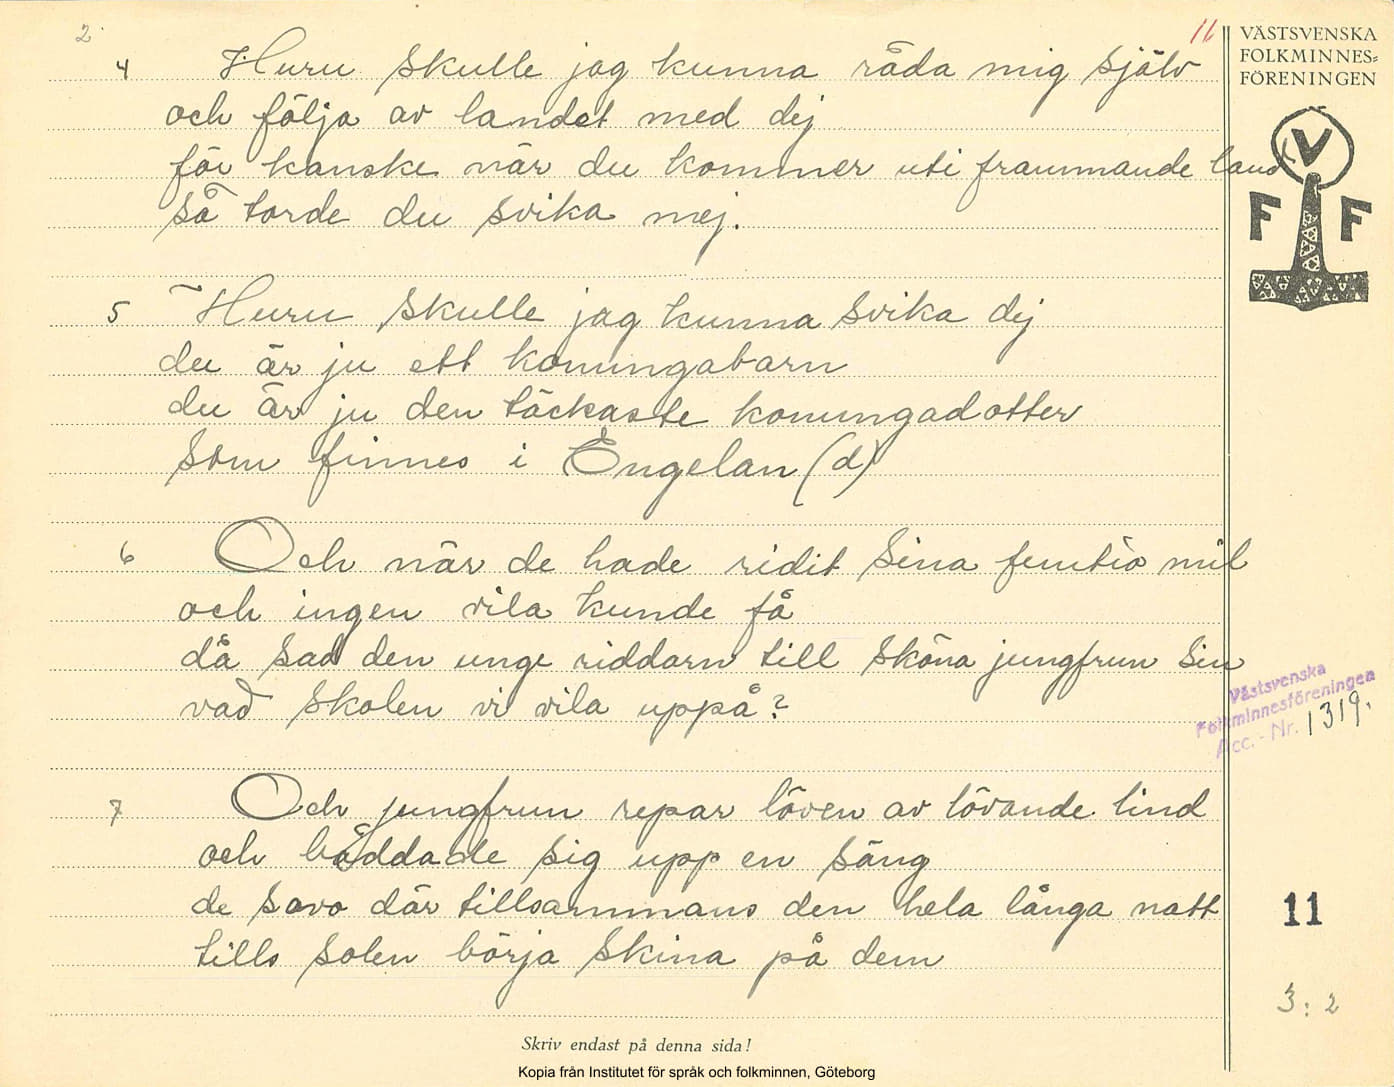 2
11
VÄSTSVENSKA
FOLKMINNES=
FÖRENINGEN
V
F F
4 Huru skulle jag kunna råda mig själv
och följa av landet med dej
för kanske när du kommer uti frammande land
så torde du svika mej.
5 Huru skulle jag kunna svika dej
du är ju ett konungabarn
du är ju den täckaste konungadotter
som finnes i Engelan(d)
6 Och när de hade ridit sina femtio mil
och ingen vila kunde få
då sad den unge riddarn till sköna jungfrun sin
vad skolen vi vila uppå?
Västsvenska
Folkminnesföreningen
Acc. - Nr. 1319.
7 Och jungfrun repar löven av lövande lind
och bäddade sig upp en säng
de sovo där tillsammans den hela långa natt
tills solen börja skina på dem
11
3:2
Skriv endast på denna sida!
Kopia från Institutet för språk och folkminnen, Göteborg